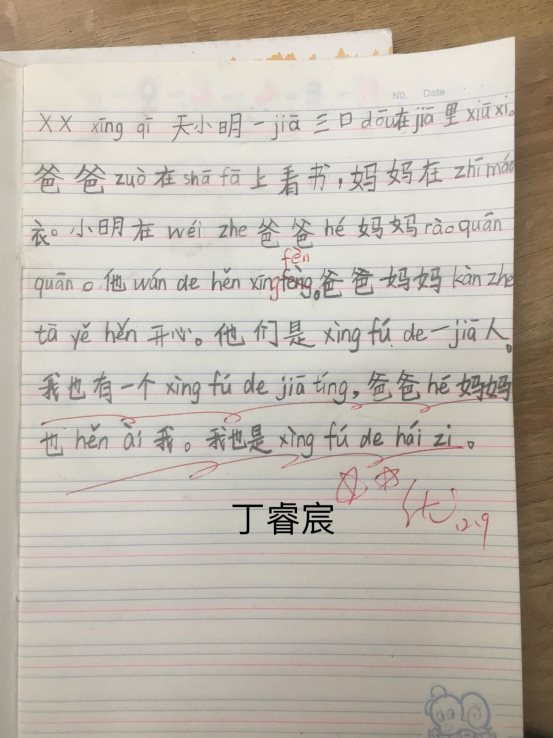 No. Date
XX xīng qī 天小明一jiā三口dōu在jiā里xiū xi。
爸爸zuò在shā fā上看书，妈妈在zhī máo
衣。小明在wéi zhe爸爸hé妈妈rào quān
fèn
quān。他wán de hěn xīngfèng。爸爸妈妈kàn zhe
tā yě hěn开心。他们是xìng fú de一jiā人。
我也有一个xìng fú de jiā tíng，爸爸hé妈妈
也hěn ài我。我也是xìng fú de hái zi。
优 12.9
丁睿宸